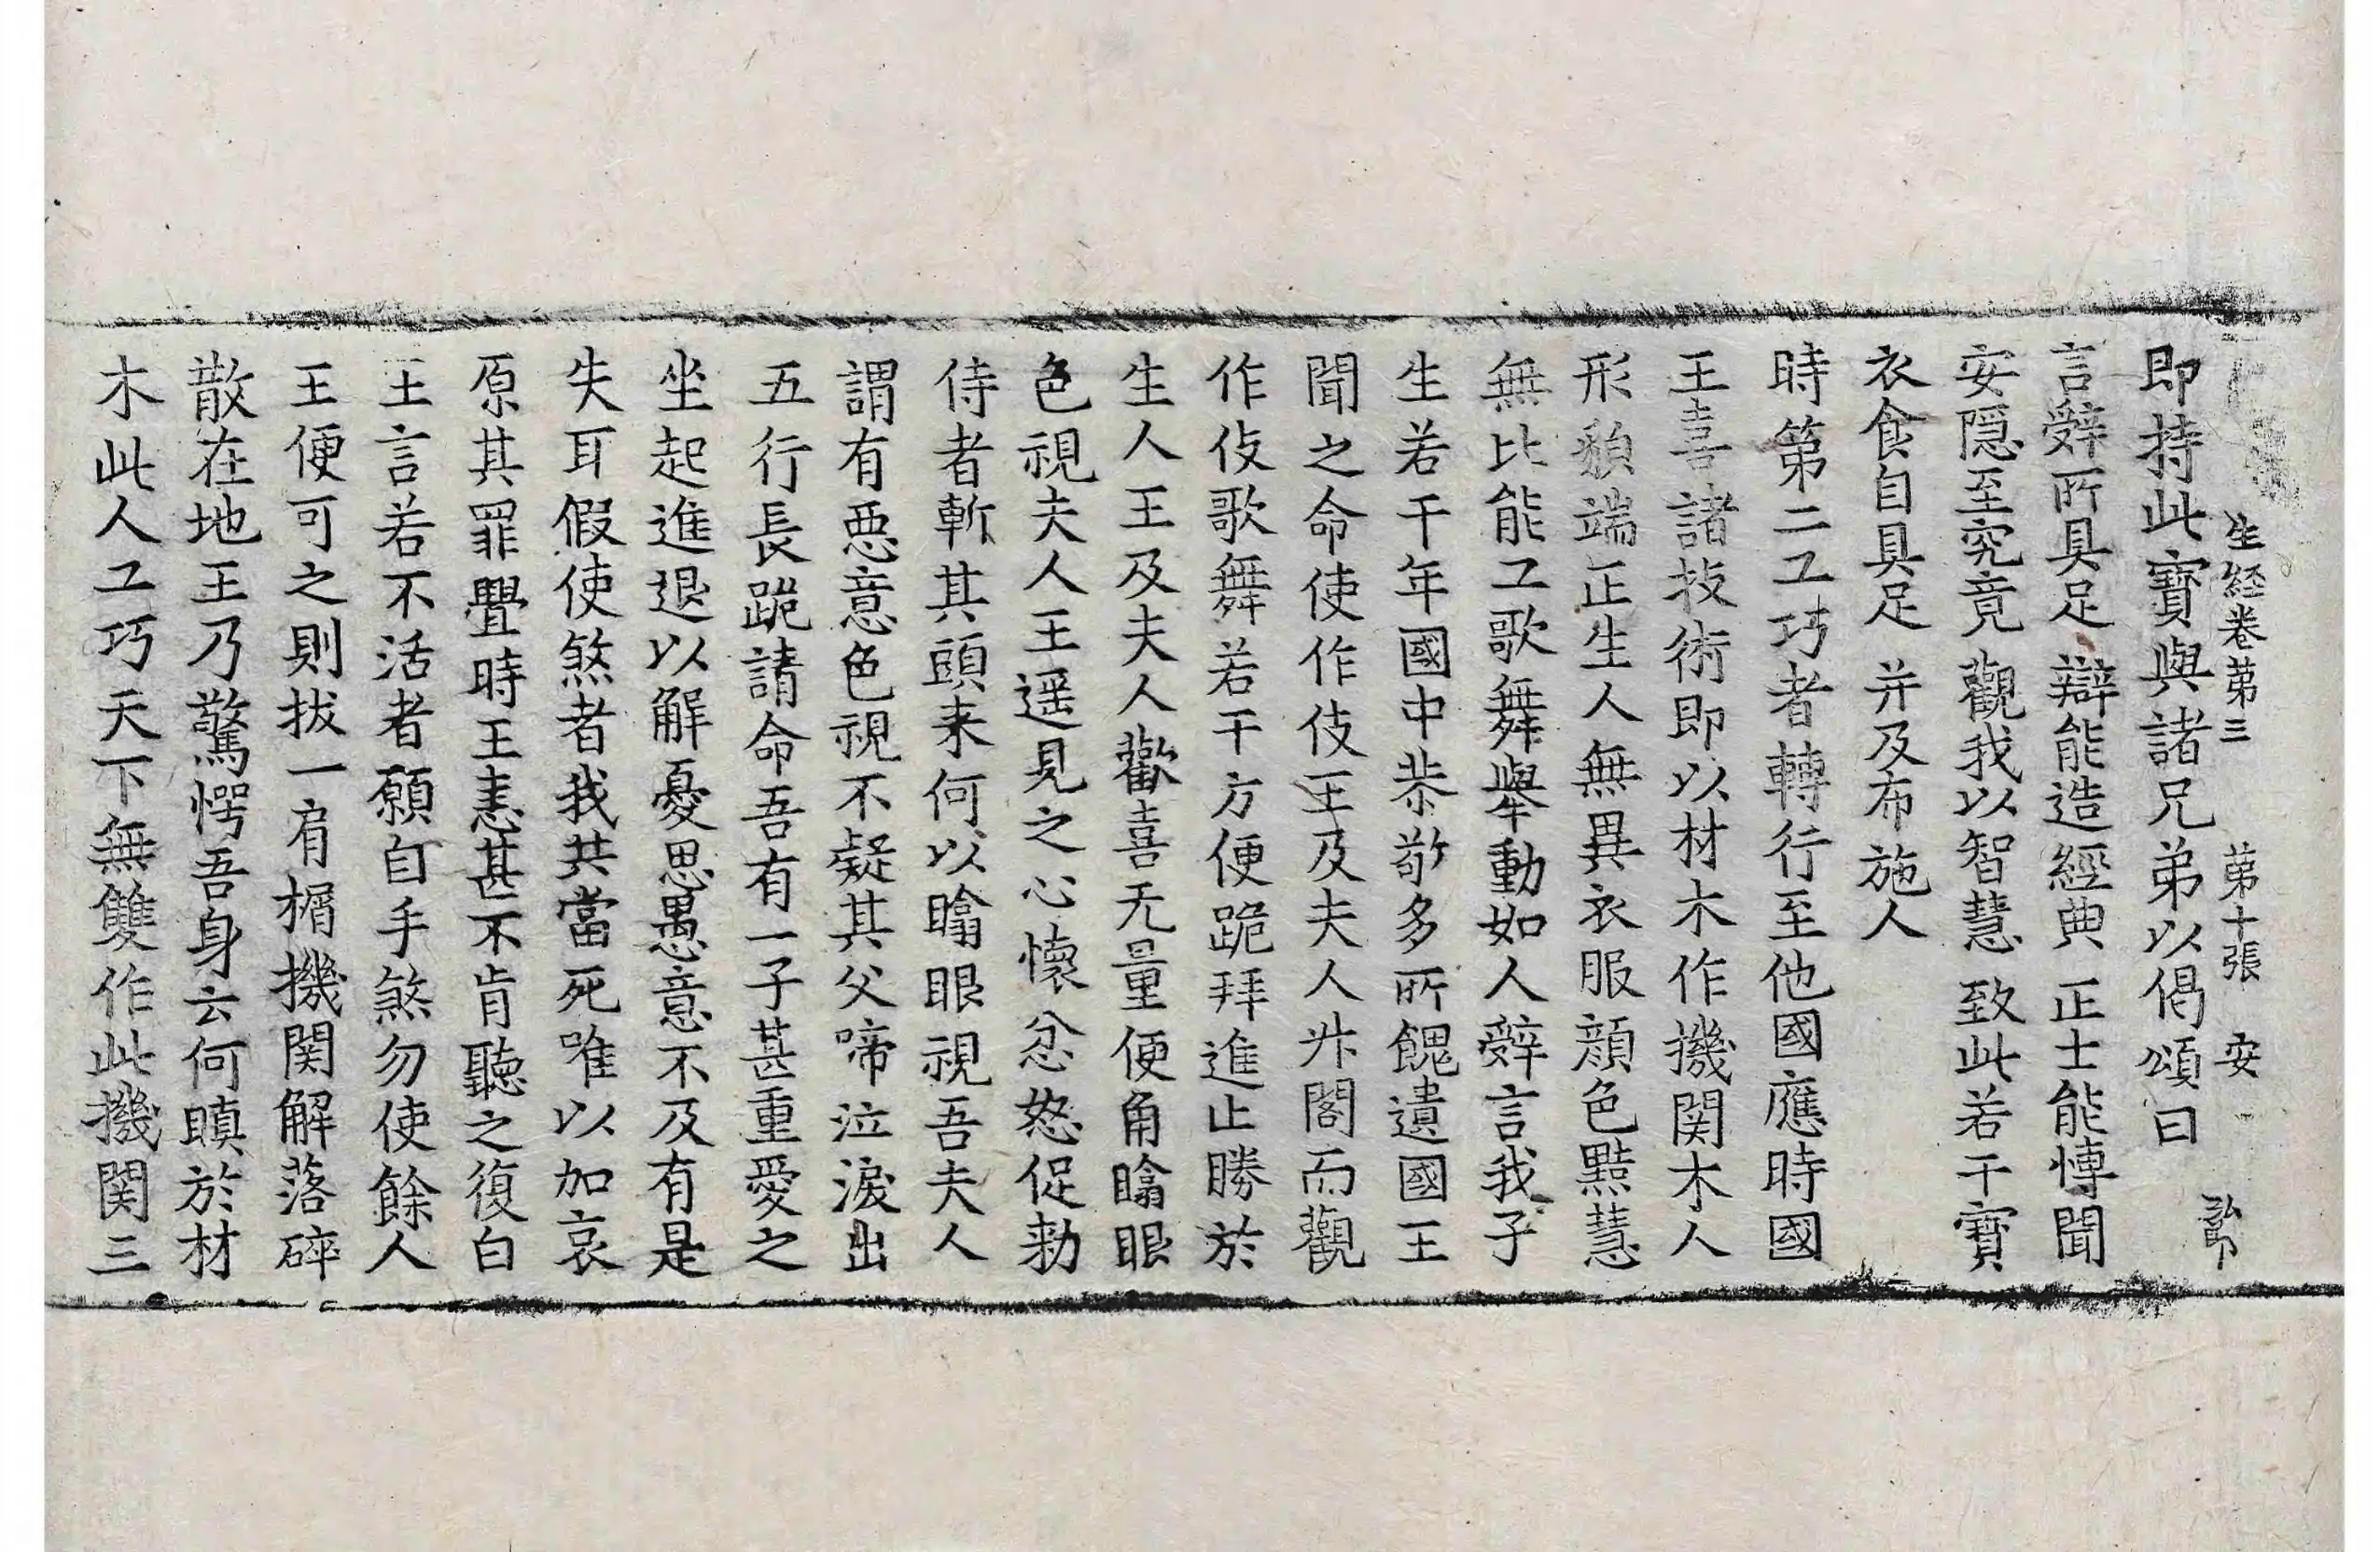 生経卷苐三 苐十張 安 弘卽
即持此寶與諸兄弟以偈頌曰
言辝所具足 辯能造經典 正士能愽聞
安隠至究竟 觀我以智慧 致此若干寶
衣食自具足 并及布施人
時第二工巧者轉行至他國應時國
王喜諸技術即以材木作機関木人
形貌端正生人無異衣服顔色黠慧
無比能工歌舞舉動如人辝言我子
生若干年國中恭敬多所餽遺國王
聞之命使作伎王及夫人升閣而觀
作伎歌舞若干方便跪拜進止勝於
生人王及夫人歡喜无量便角瞚眼
色視夫人王遥見之心懷忿怒促勑
侍者斬其頭来何以瞚眼視吾夫人
謂有悪意色視不疑其父啼泣淚出
五行長跪請命吾有一子甚重愛之
坐起進退以解憂思愚意不及有是
失耳假使煞者我共當死唯以加哀
原其罪舋時王恚甚不肯聽之復白
王言若不活者願自手煞勿使餘人
王便可之則拔一肩楯機関解落碎
散在地王乃驚愕吾身云何瞋於材
木此人工巧天下無雙作此機関三